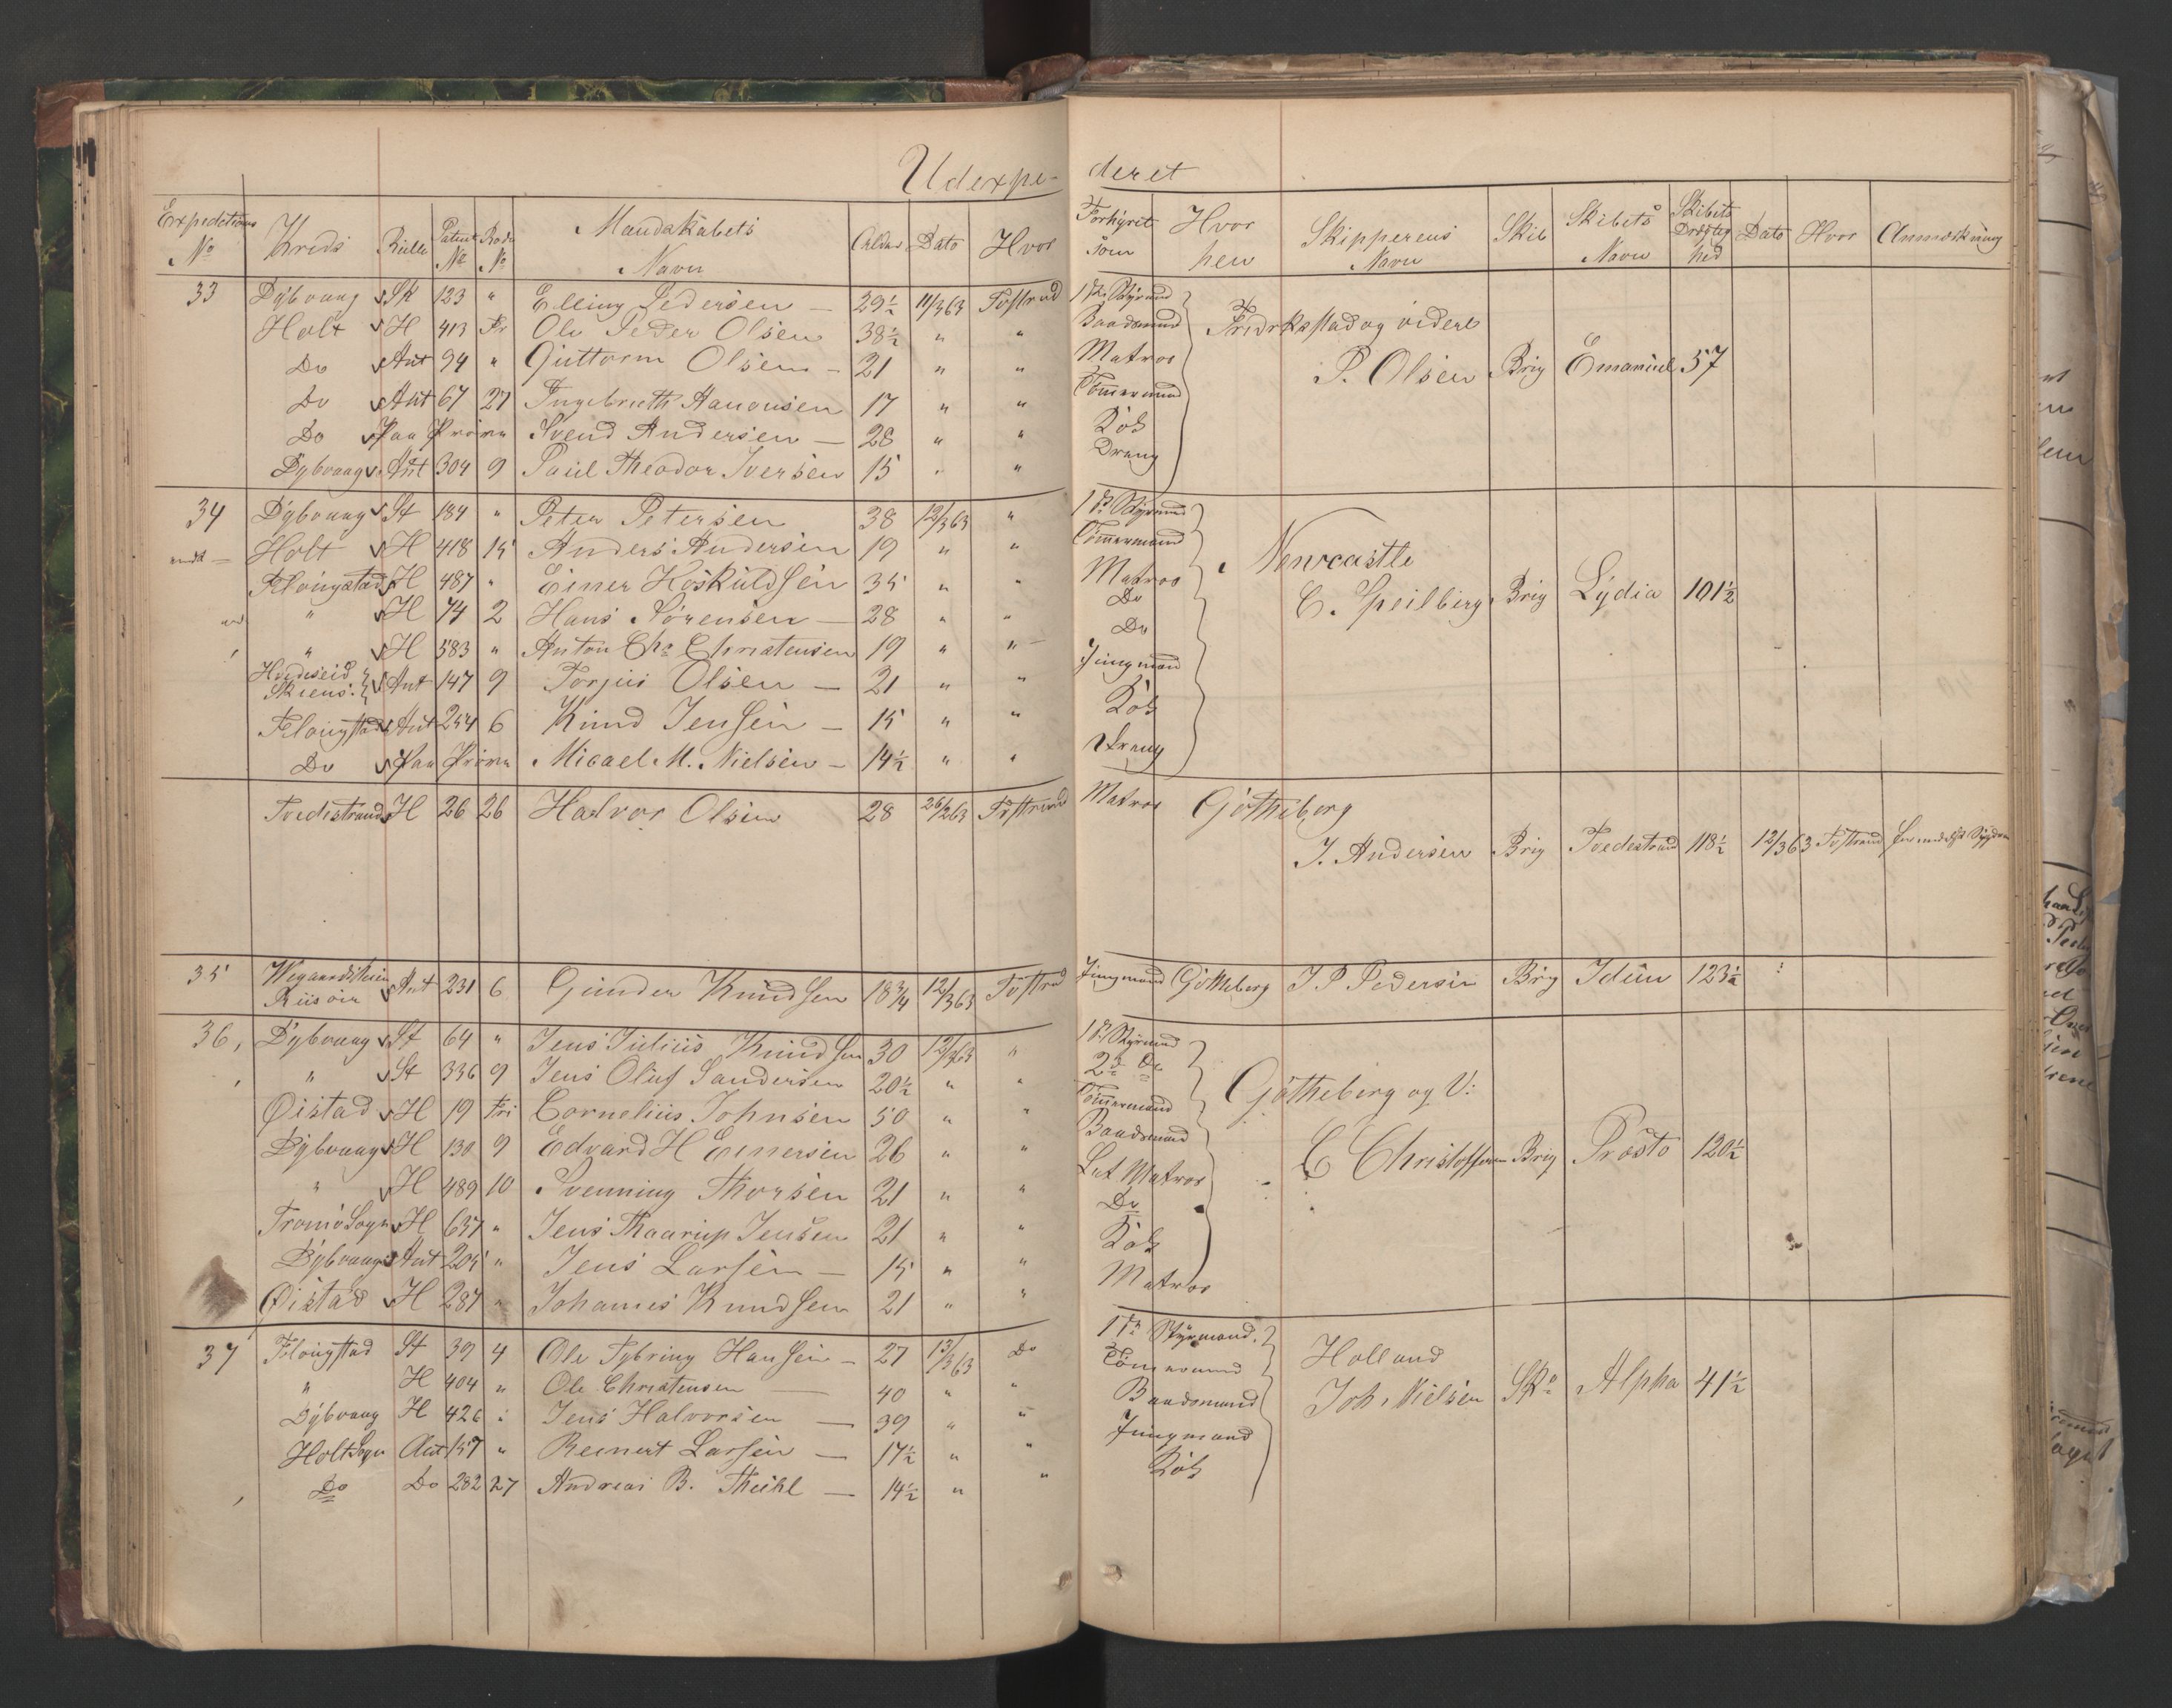 Udexpe- deret
Expeditions No Kreds Rulle Patent No Rode No Mandskabets Navn Alder Dato Hvor Forhyret som Hvor hen Skipperens Navn Skib Skibets Navn Skibets Drægtighed Dato Hvor Anmærkning
33 Dybvaag Sk 123 " Elling Pedersen — 29½ 11/3 63 Tvstrnd 1ste Styrmd
Holt H 413 Fr Ole Peder Olsen 38½ " " Baadsmand Fredrksstad og videre
Do Ant 94 " Guttorm Olsen — 21 " " Matros P. Olsen Brig Emanuel 57
Do Ant 67 27 Ingebreth Aanonsen 17 " " Tømmermand
Do Paa Prøve Svend Andersen — 28 " " Kok
Dybvaag Ant 304 9 Paul Theodor Iversen 15 " " Dreng
34 Dybvaag St 184 " Peter Petersen 38 12/3 63 " 1ste Styrmd
Holt H 418 15 Anders Andersen 19 " " Tømmermand Newcastle
Flougstad H 487 " Einer Hoskuldsen 35 " " Matros C. Speilberg Brig Lydia 101½
" H 74 2 Hans Sørensen — 28 " " Do
" H 583 " Anton Chr Christensen 19 " " Do
Hvideseid Skiens: Ant 147 9 Torjus Olsen — 21 " " Jungmand
Flougstad Ant 254 6 Knud Jensen — 15 " " Kok
Do Paa Prøve Micael M. Nielsen — 14½ " " Dreng
Tvedestrand H 26 26 Halvor Olsen 28 26/2 63 Tvstrand Matros Gøtheborg
J. Andersen Brig Tvedestrand 118½ 12/3 63 Tvstrand
35 Riisøer Ant 231 6 Gunder Knudsen 18¾ 12/3 63 Tvstrnd Jungmand Gøtheborg J P Pedersen Brig Idun 123½
36, Dybvaag St 64 " Jens Julius Knudsen 30 12/3 63 " 1ste Styrmd
" St 336 9 Jens Oluf Sandersen 20½ " " 2d Do
Øistad H 19 Fri Cornelius Johnsen 50 " " Tømmermand Gøtheborg og V:
Dybvaag H 130 9 Edvard H Einersen 26 " " Baadsmand C Christoffersen Brig Prøsto 120½
" H 489 10 Svenning Thorsen 21 " " Let Matros
Tromø Sogn H 637 " Jens Thaarup Jensen 21 " " Do
Dybvaag Ant 205 " Jens Larsen — 15 " " Kok
Øistad H 287 " Johannes Knudsen 21 " " Matros
37 Flougstad St 39 4 Ole Tybring Hansen — 27 13/3 63 Do 1ste Styrmand. Holland
" H 404 " Ole Christensen — 40 " " Tømmermand Joh. Nielsen Sk. Alpha 41½
Dybvaag H 426 " Jens Halvorsen — 39 " " Baadsmand
Holt Sogn Ant 157 " Reinert Larsen — 17½ " " Jungmand
Do Do 282 27 Andreas B. Thühl — 14½ " " Kok